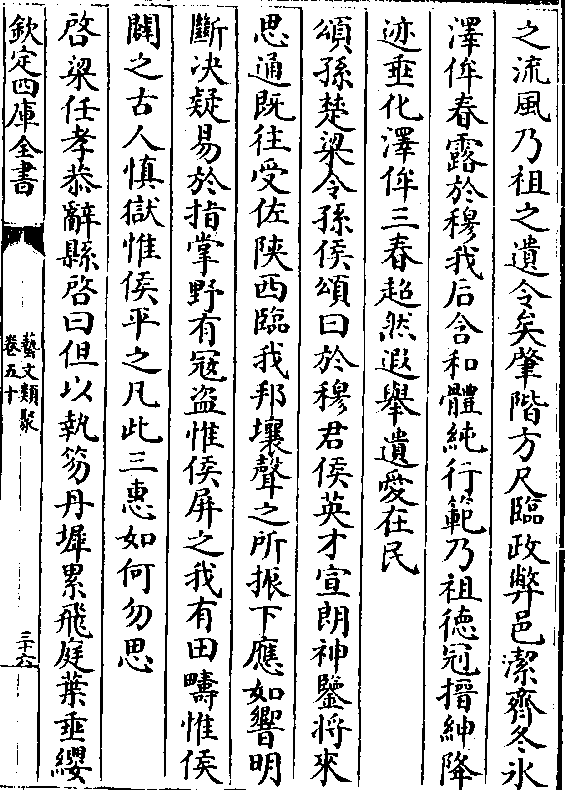 之流風乃祖之遺令矣肇階方尺臨政弊邑潔齊冬氷
澤侔春露於穆我后含和體純行範乃祖徳冠搢紳降
迹垂化澤侔三春超然遐舉遺愛在民
頌孫楚梁令孫侯頌曰於穆君侯英才宣朗神鑒將來
思通既往受佐陜西臨我邦壤聲之所振下應如響明
斷决疑易於指掌野有冦盗惟侯屏之我有田疇惟侯
闢之古人慎獄惟侯平之凡此三惠如何勿思
啓梁任孝恭辭縣啓曰但以執笏丹墀累飛庭葉垂纓
欽定四庫全書
藝文類聚
卷五十
三十六